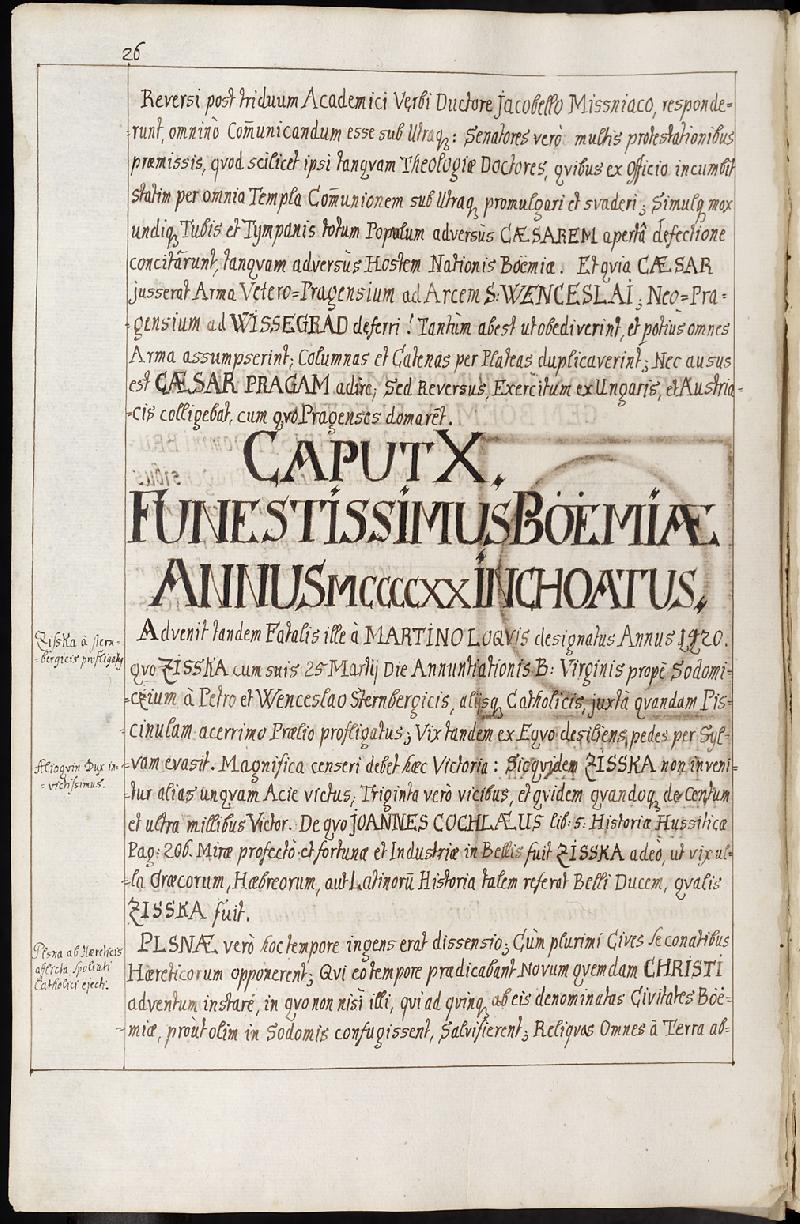 26
Reversi post triduum Academici Verbi Ductore Jacobello Missniaco, responde=
runt, omninò Com̄unicandum esse sub Utraq;: Senatores verò multis protestationibus
præmissis, qvod scilicet ipsi tanqvam Theologiæ Doctores, qvibus ex Officio incumbit
statim per omnia Templa Com̄unionem sub Utraq; promulgari et svaderi; Simulq; mox
undiq; Tubis et Tympanis totum Populum adversùs CÆSAREM apertâ defectione
concitârunt, tanqvam adversùs Hostem Nationis Böemiæ. Et qvia CÆSAR
jusserat Arma Vetero=Pragensium ad Arcem S: WENCESLAI; Neo=Pra=
gensium ad WISSEGRAD deferri! Tantùm abest ut obediverint, et potiùs omnes
Arma assumpserint; Columnas et Catenas per Plateas duplicaverint; Nec ausus
est CÆSAR PRAGAM adire; Sed Reversus, Exercitum ex Ungaris, et Austria=
=cis colligebat, cum qvo Pragenses domaret.
CAPUT X.
FUNESTISSIMUS BÖEMIÆ
ANNUS MCCCCXX INCHOATUS.
Zisska à Stern=
=bergicis profligatq
Advenit tandem Fatalis ille à MARTINO LOQVIS designatus Annus 1420.
qvo ZISSKA cum suis 25 Martij Die Annuntiationis B: Virginis propè Sodomi=
=czium à Petro et Wenceslao Sternbergicis, alijsq; Catholicis, juxtà qvandam Pis=
cinulam acerrimo Prælio profligatus; Vix tandem ex Eqvo desiliens, pedes per Syl=
Alioqvin Dux in=
=victissimus.
=vam evasit. Magnifica censeri debet hæc Victoria: Siqvidem ZISSKA non inveni=
=tur alias unqvam Acie victus; Triginta verò vicibus, et qvidem qvandoq; de Centum
et ultra millibus Victor. De qvo JOANNES COCHLÆUS lib: 5: Historiæ Hussiticæ
Pag: 206. Miræ profectò et fortunæ et Industriæ in Bellis fuit ZISSKA adeò, ut vix ul=
=la Græcorum, Hæbreorum, aut Latinorū Historia talem referat Belli Ducem, qvalis
ZISSKA fuit.
Plsna ab Hæreticis
aflicta Spoliati
Catholici ejecti.
PLSNÆ verò hoc tempore ingens erat dissensio; Cùm plurimi Cives se conatibus
Hæreticorum opponerent; Qvi eo tempore prædicabant Novum qvemdam CHRISTI
adventum instare, in qvo non nisi illi, qvi ad qvinq; ab eis denominatas Civitates Böe=
=miæ, proùt olim in Sodomis confugissent, Salvifierent; Reliqvos Omnes à Terra ab=